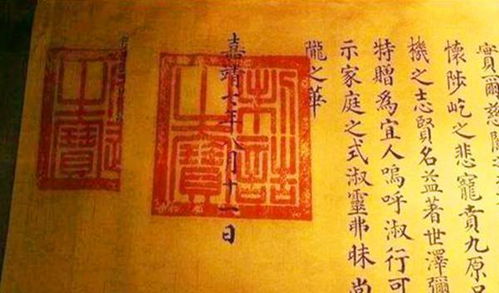 實爾慈
懷陟屺之悲寵賁九原
機之志賢名益著世澤彌
特贈為宜人嗚呼淑行可
示家庭之式淑靈弗昧尚
隴之華
嘉靖七年八月十一日
制誥之寶
之寶